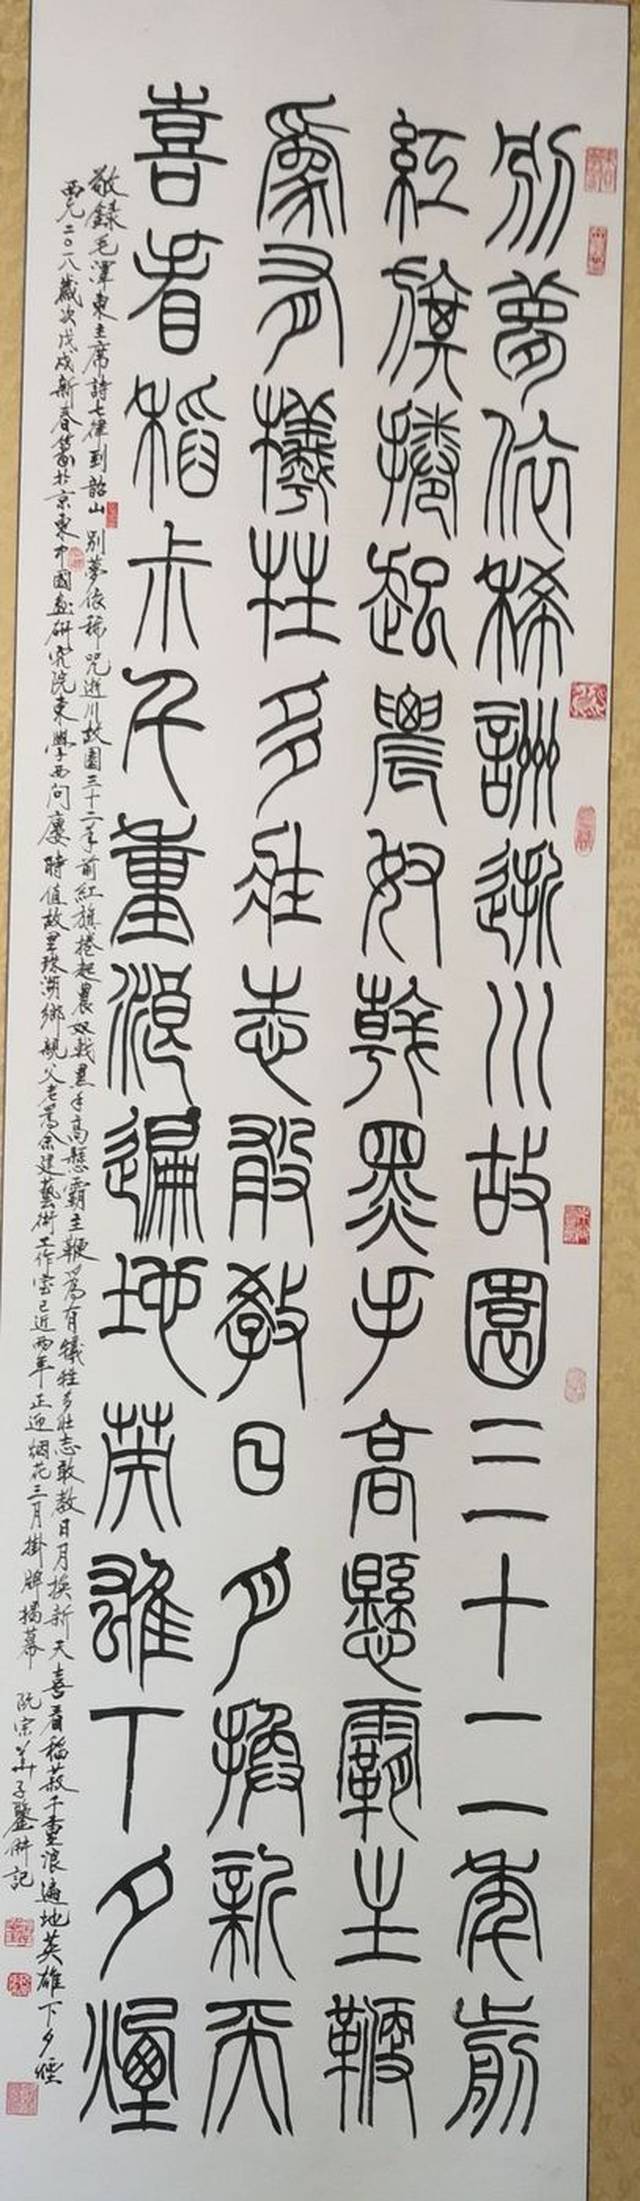 別夢依稀詶逝川故園三十二年前
紅旗捲起農奴戟黑手高懸霸主鞭
爲有犧牲多壯志敢教日月換新天
喜看稻尗千重浪遍地英雄下夕煙
敬錄毛澤東主席詩七律到韶山 別夢依稀咒逝川故園三十二年前紅旗捲起農奴戟黑手高懸霸主鞭爲有犧牲多壯志敢教日月換新天喜看稻菽千重浪遍地英雄下夕煙
西元二〇一八歲次戊戌新春篆於京東中國畫研究院東學西問廬 時值故里珠湖鄉親父老爲余建藝術工作室已近兩年正迎烟花三月掛牌揭幕 阮宗華子鑒併記